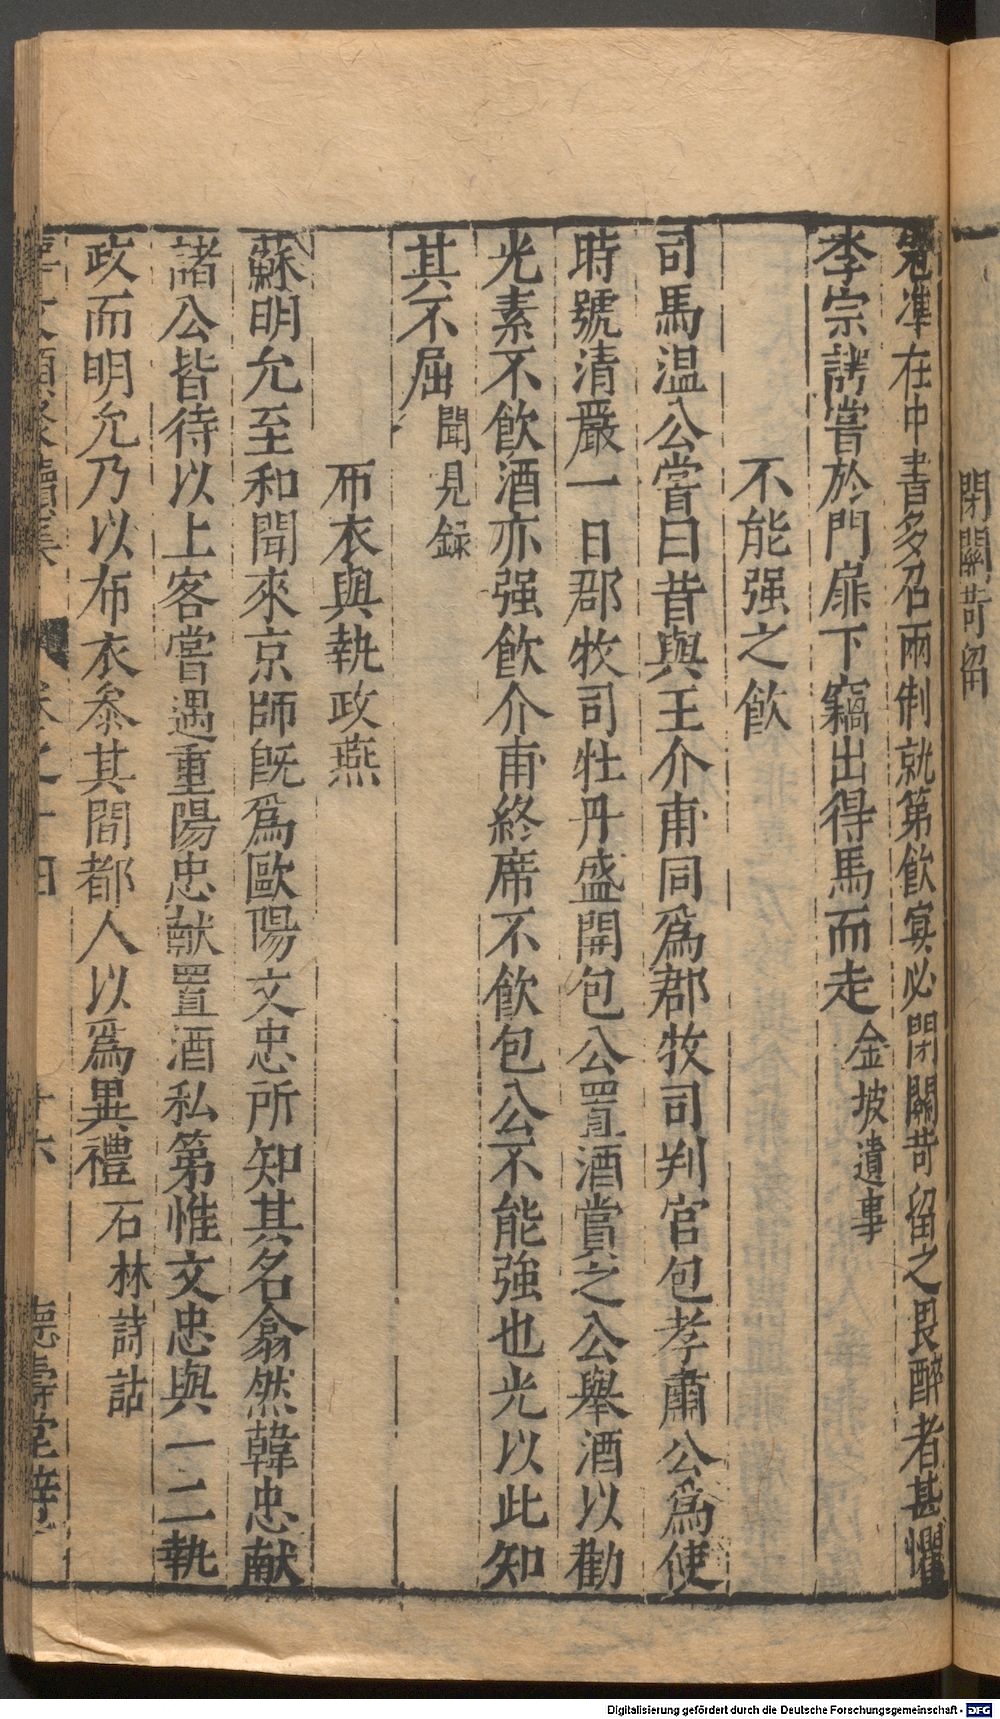 閉關苛留
寇準在中書多召兩制就第飲宴必閉關苛留之畏醉者甚懼
李宗諤嘗於門扉下竊出得馬而走金坡遺事
不能强之飲
司馬温公嘗曰昔與王介甫同爲郡牧司判官包孝肅公爲使
時號清嚴一日郡牧司牡丹盛開包公置酒賞之公舉酒以勸
光素不飲酒亦强飲介甫終席不飲包公不能強也光以此知
其不屈聞見録
布衣與執政燕
蘇明允至和間來京師旣爲歐陽文忠所知其名翕然韓忠献
諸公皆待以上客嘗遇重陽忠献置酒私第惟文忠與一二執
政而明允乃以布衣叅其間都人以爲異禮石林詩話
卷之十四
廿六
德壽堂梓
Digitalisierung gefördert durch die Deutsche Forschungsgemeinschaft - DFG